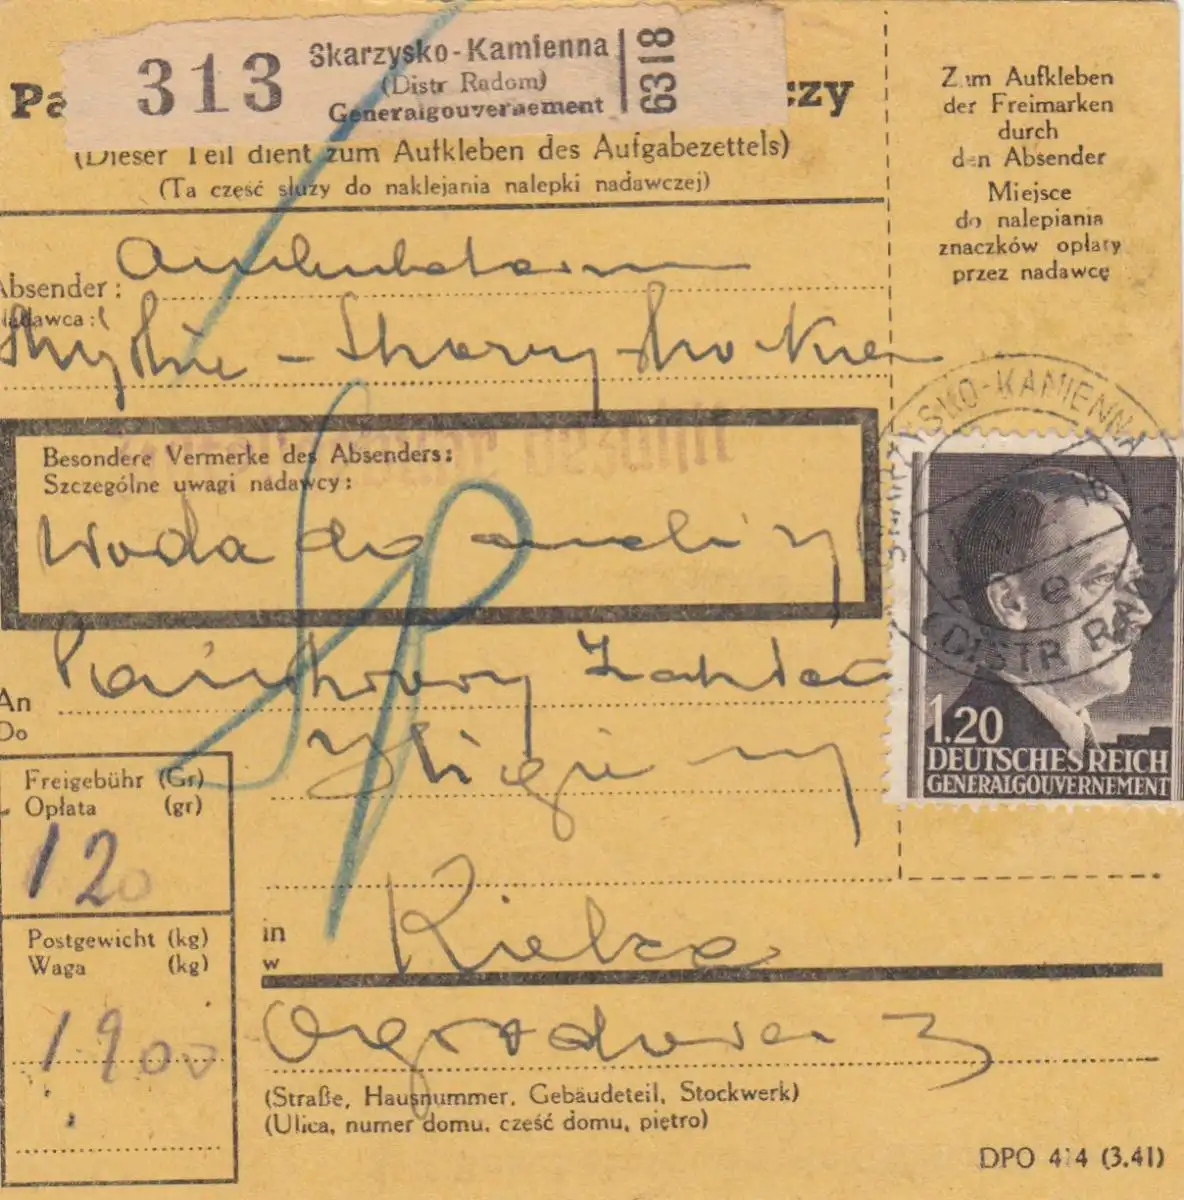 313 Skarzysko-Kamienna
(Distr Radom)
Generalgouvernement
6318
Pa czy
(Dieser Teil dient zum Aufkleben des Aufgabezettels)
(Ta część służy do naklejania nalepki nadawczej)
Zum Aufkleben
der Freimarken
durch
den Absender
Miejsce
do nalepiania
znaczków opłaty
przez nadawcę
Absender:
Nadawca:
Ambulatorium
gebühr bezahlt
Besondere Vermerke des Absenders:
Szczególne uwagi nadawcy:
Woda do analizy
SKARZYSKO-KAMIENNA
(DISTR RADOM)
16
e
1.20
DEUTSCHES REICH
GENERALGOUVERNEMENT
An
Do
Państwowy Zakład
Higieny
Freigebühr (Gr)
Opłata (gr)
120
in
w
Kielce
Postgewicht (kg)
Waga (kg)
1900
Ogrodowa 3
(Straße, Hausnummer, Gebäudeteil, Stockwerk)
(Ulica, numer domu, cześć domu, piętro)
DPO 414 (3.41)